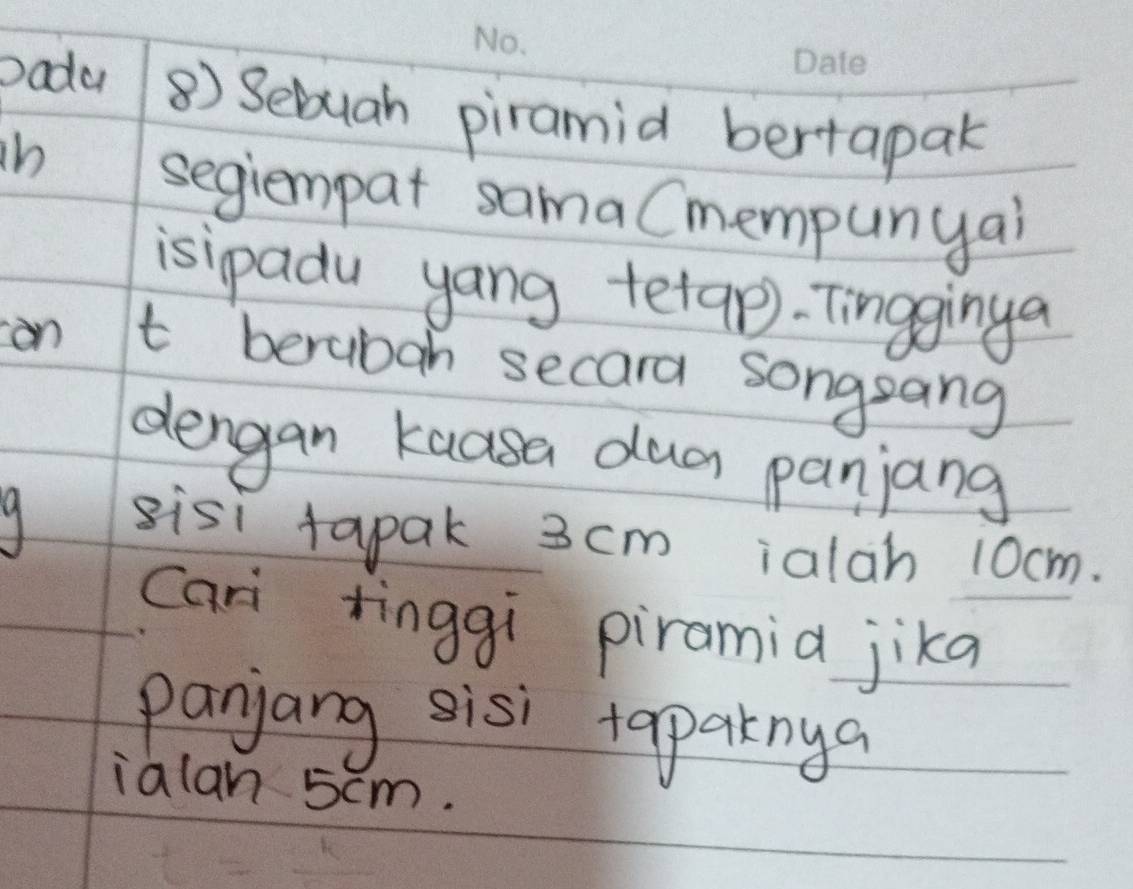 No.
Date
8) Sebuah piramid bertapak
segiempat sama (mempunyai
isipadu yang tetap). Tingginya
t berubah secara songsang
dengan kuasa dua panjang
sisi tapak 3cm ialah 10cm.
Cari tinggi piramid jika
panjang sisi tapaknya
ialah 5cm.